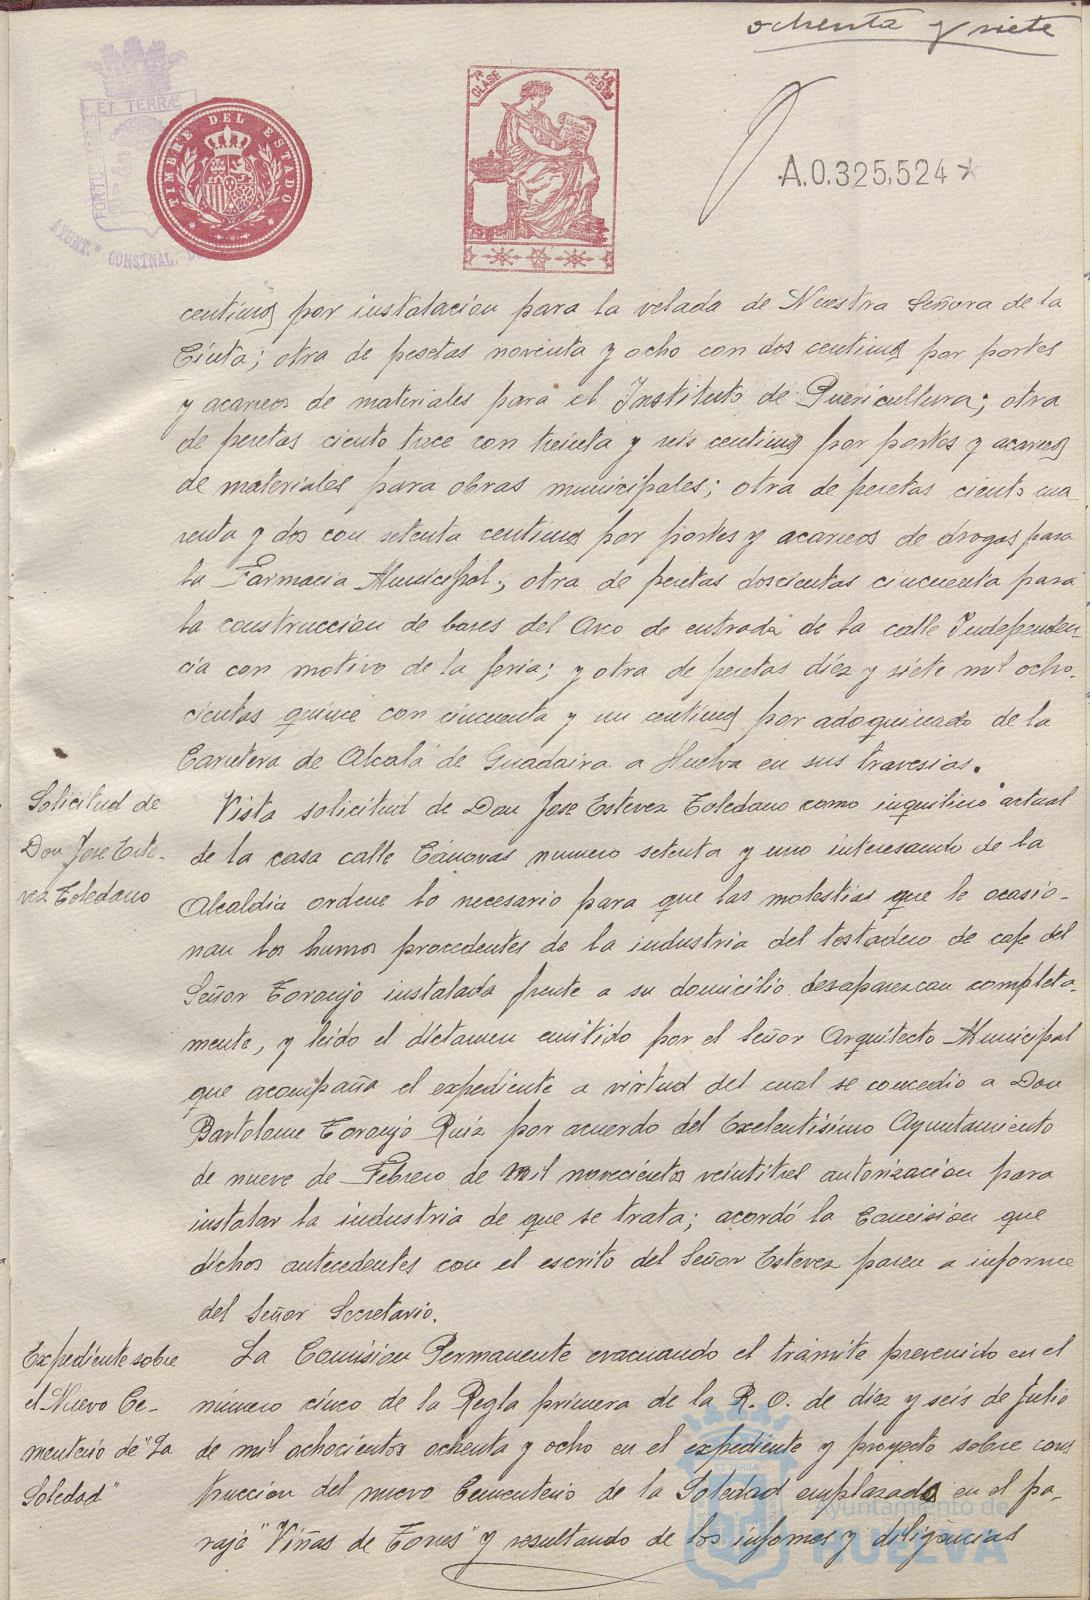 ochenta y siete
ET TERRÆ
AYUNT.º CONSTNAL. D
TIMBRE DEL ESTADO
7ª CLASE
1,a PESTAS
A.0.325,524
centimos por instalacion para la velada de Nuestra Señora de la
Cinta; otra de pesetas noventa y ocho con dos centimos por portes
y acarreos de materiales para el Instituto de Puericultura; otra
de pesetas ciento trece con treinta y seis centimos por portes y acarreos
de materiales para obras municipales; otra de pesetas ciento cua-
renta y dos con setenta centimos por portes y acarreos de drogas para
la Farmacia Municipal; otra de pesetas doscientas cincuenta para
la construccion de bases del Arco de entrada de la calle Independen-
cia con motivo de la feria; y otra de pesetas diez y siete mil ocho-
cientas quince con cincuenta y un centimos por adoquinado de la
Carretera de Alcalá de Guadaira a Huelva en sus travesias.
Solicitud de
Don Jose Este-
vez Toledano
Vista solicitud de Don Jose Estevez Toledano como inquilino actual
de la casa calle Cánovas numero setenta y uno interesando de la
Alcaldia ordene lo necesario para que las molestias que le ocasio-
nan los humos procedentes de la industria del tostadero de cafe del
Señor Toronjo instalada frente a su domicilio desaparezcan completa-
mente, y leido el dictamen emitido por el Señor Arquitecto Municipal
que acompaña el expediente a virtud del cual se concedio a Don
Bartolome Toronjo Ruiz por acuerdo del Excelentisimo Ayuntamiento
de nueve de Febrero de mil novecientos veintitres autorizacion para
instalar la industria de que se trata; acordó la Comision que
dichos antecedentes con el escrito del Señor Estevez pasen a informe
del Señor Secretario.
Expediente sobre
el Nuevo Ce-
menterio de "La
Soledad"
La Comision Permanente evacuando el trámite prevenido en el
número cinco de la Regla primera de la R. O. de diez y seis de Julio
de mil ochocientos ochenta y ocho en el expediente y proyecto sobre cons
truccion del nuevo Cementerio de la Soledad emplazado en el pa-
raje "Viñas de Torres" y resultando de los informes y diligencias
Ayuntamiento de
HUELVA